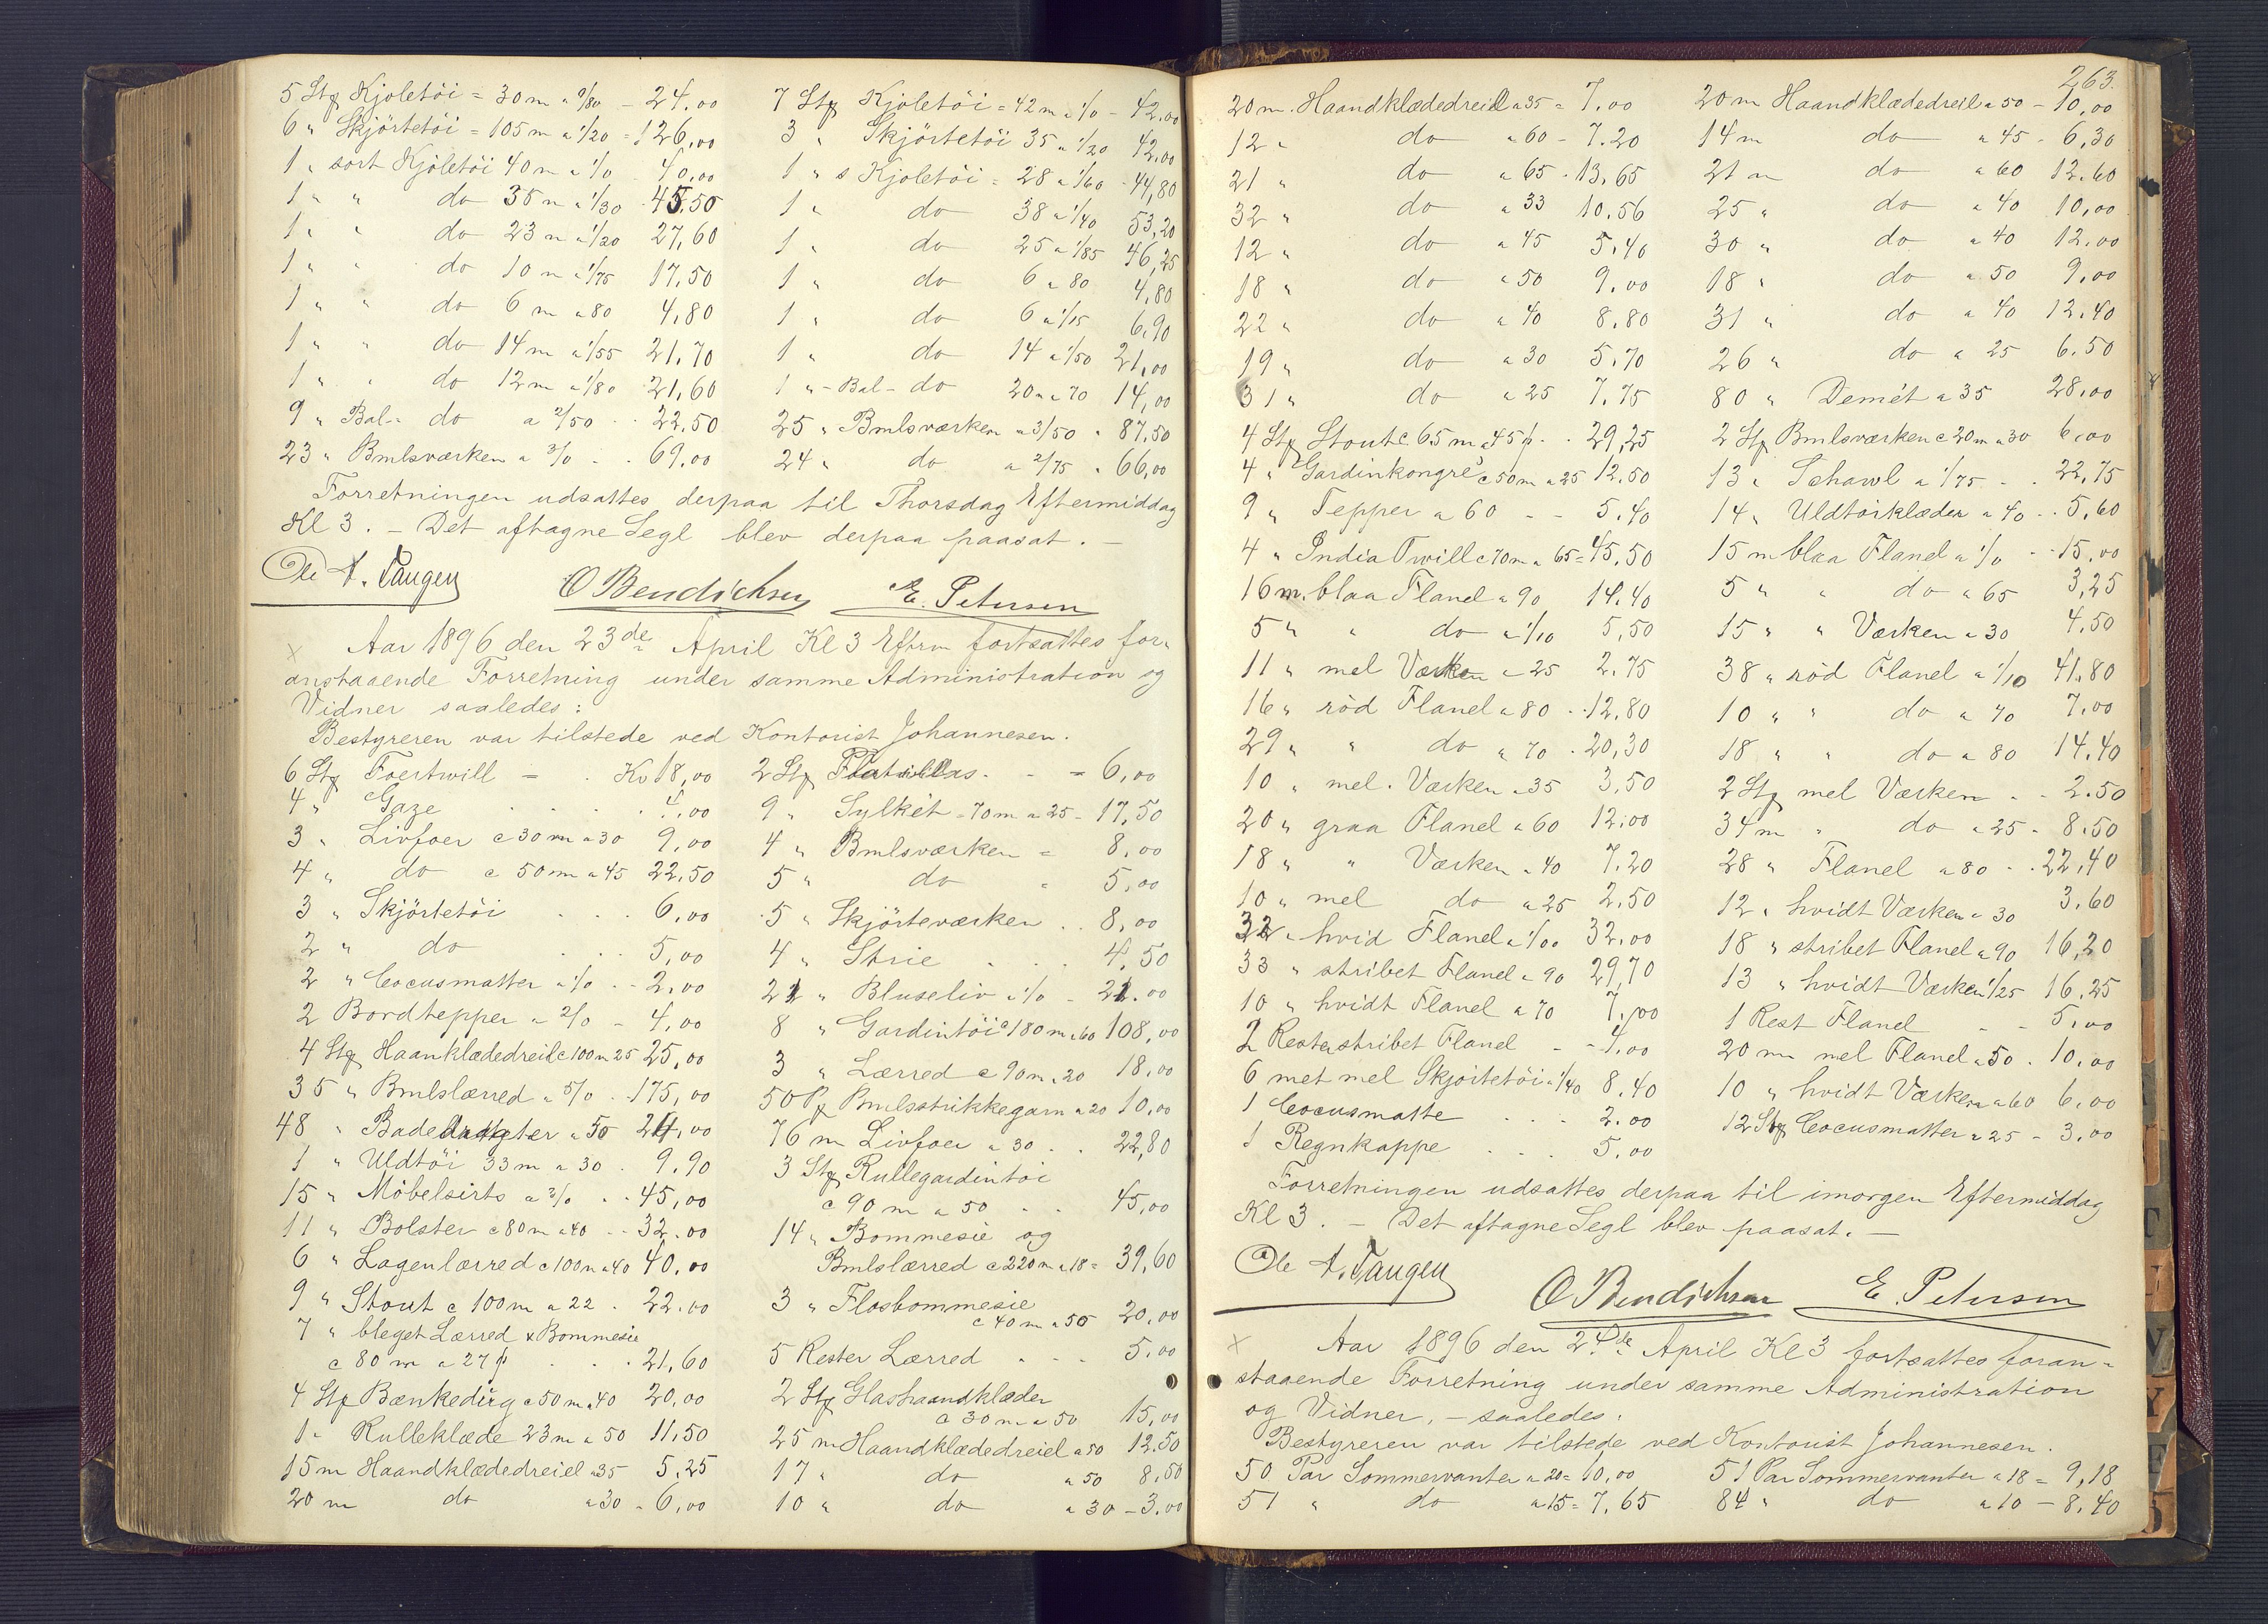 5 Stk Kjoletöi = 30 m a 0/80 - 24.00
6 " Skjörtetöi = 105 m a 1/20 = 126,00
1 " sort Kjoletöi 40 m a 1/0 40,00
1 " " do 35 m a 1/30 45.50
1 " " do 23 m a 1/20 27,60
1 " " do 10 m a 1/75 17,50
1 " " do 6 m a 80 4,80
1 " " do 14 m a 1/55 21,70
1 " " do 12 m a 1/80 21,60
9 " Bal- do a 2/50 - - 22,50
23 " Bmlsværken a 3/0 - - 69.00
7 Stk Kjoletöi = 42 m a 1/0 - 42,00
3 " Skjörtetöi 35 a 1/20 42,00
1 " s Kjoletöi = 28 a 1/60 - 44,80
1 " do 38 a 1/40 53,20
1 " do 25 a 1/85 46,25
1 " do 6 a 80 4,80
1 " do 6 a 1/15 6,90
1 " do 14 a 1/50 21,00
1 " - Bal - do 20 m a 70 14,00
25 " Bmlsværken a 3/50 " 87,50
24 " do a 2/75 " 66,00
Forretningen udsattes derpaa til Thorsdag Eftermiddag
Kl 3. - Det aftagne Segl blev derpaa paasat. -
Ole A. Tangen O Bendichsen E. Petersen
x Aar 1896 den 23de April Kl 3 Efterm fortsattes for-
anstaaende Forretning under samme Administration og
Vidner saaledes:
Bestyreren var tilstede ved Kontorist Johannesen.
6 Stk Foertwill = . Kr 18,00
4 " Gaze . . . . 4,00
3 " Livfoer c 30 m a 30 9,00
4 " do c 50 m a 45 22,50
3 " Skjörtetöi . . . 6,00
2 " do . . . 5,00
2 " Cocusmatter a 1/0 - - 2,00
2 Bordtepper a 2/0 - 4,00
4 Stk Haanklædedreil c 100 m 25 25,00
35 " Bmlslærred a 5/0 . 175,00
48 " Badedragter a 50 24,00
1 " Uldtöi 33 m a 30 . 9.90
15 " Möbelsirts a 3/0 . . 45,00
11 " Bolster c 80 m a 40 - - 32.00
6 " Lagenlærred c 100 m a 40 40,00
9 " Stout c 100 m a 22 . 22.00
7 " bleget Lærred & Bommesie
c 80 m a 27 p . . . 21,60
4 Stk Bænkedirg c 50 m a 40 20,00
1 " Rulleklæde 23 m a 50 11,50
15 m Haandklædedreiel a 35 5,25
20 m do a 30 - 6,00
2 Stk . - = 6,00
9 " Sylkét = 70 m a 25 - 17,50
4 " Bmlsværken = 8,00
5 " do " 5,00
5 " Skjörteværken . . 8,00
4 " Strie . . . 4,50
21 " Bluseliv a 1/0 - 21.00
8 " Gardintöi c 180 m a 60 108,00
3 " Lærred c 90 m a 20 18,00
50 Pk Bmlsstrikkegarn a 20 10,00
76 m Livfoer a 30 . . 22,80
3 Stk Rullegardintöi
c 90 m a 50 . . 45,00
14 " Bommesie og
Bmlslærred c 220 m a 18 = 39,60
3 " Flosbommesie
c 40 m a 50 20,00
5 Rester Lærred . . . 5,00
2 Stk Glashaandklæder
c 30 m a 50 15,00
25 m Haandklædedreiel a 50 12,50
17 " do a 50 8,50
10 " do a 30 - 3,00
263.
20 m. Haandklædedreiel a 35 = 7,00
12 " do a 60 - 7.20
21 " do a 65 - 13,65
32 " do a 33 10,56
12 " do a 45 5,40
18 " do a 50 9,00
22 " do a 40 8,80
19 " do a 30 5,70
31 " do a 25 7,75
4 Stk Stout c 65 m a 45 p . . 29,25
4 " Gardinkongres c 50 m a 25 12,50
9 " Tepper a 60 - - 5,40
4 " India Twill c 70 m a 65 = 45,50
16 m. blaa Flanel a 90 14.40
5 " " do a 1/10 5,50
11 " mel Værken a 25 2.75
16 " röd Flanel a 80 . 12,80
29 " " do a 70 . 20,30
10 " mel. Værken a 35 3,50
20 " graa Flanel a 60 12,00
18 " " Værken a 40 7,20
10 " mel do a 25 2,50
32 " hvid Flanel a 1/00 32,00
33 " stribet Flanel a 90 29,70
10 " hvidt Flanel a 70 7,00
2 Rester stribet Flanel - - 4,00
6 met mel Skjörtetöi a 1/40 8,40
1 Cocusmatte . . . 2.00
1 Regnkappe . . . 5.00
20 m Haandklædedreil a 50 - 10,00
14 m do a 45 - 6,30
21 m do a 60 12.60
25 " do a 40 10,00
30 " do a 40 12,00
18 " do a 50 9,00
31 " do a 40 12,40
26 " do a 25 6.50
80 " Demét a 35 28,00
2 Stk Bmlsværken c 20 m a 30 6,00
13 " Schawl a 1/75 - . 22,75
14 " Uldtörklæder a 40 . . 5,60
15 m blaa Flanel a 1/0 - - 15,00
5 " " do a 65 3,25
15 " " Værken a 30 4,50
38 " röd Flanel a 1/10 41,80
10 " " do a 70 7,00
18 " " do a 80 14,40
2 Stk mel Værken - - 2.50
34 m " do a 25 - 8,50
28 " Flanel a 80 - . 22,40
12 " hvidt Værken a 30 3,60
18 " stribet Flanel a 90 16,20
13 " hvidt Værken 1/25 16,25
1 Rest Flanel - - 5,00
20 m mel Flanel a 50 . 10,00
10 " hvidt Værken a 60 6,00
12 Stk Cocusmatter a 25 - 3,00
Forretningen udsattes derpaa til imorgen Eftermiddag
Kl 3. - Det aftagne Segl blev paasat. -
Ole A. Tangen O Bendichsen E. Petersen
x Aar 1896 den 24de April Kl 3 fortsattes foran-
staaende Forretning under samme Administration
og Vidner, - saaledes:
Bestyreren var tilstede ved Kontorist Johannesen.
50 Par Sommervanter a 20 = 10,00 51 Par Sommervanter a 18 = 9,18
51 " do a 15 = 7,65 84 " do a 10 - 8,40